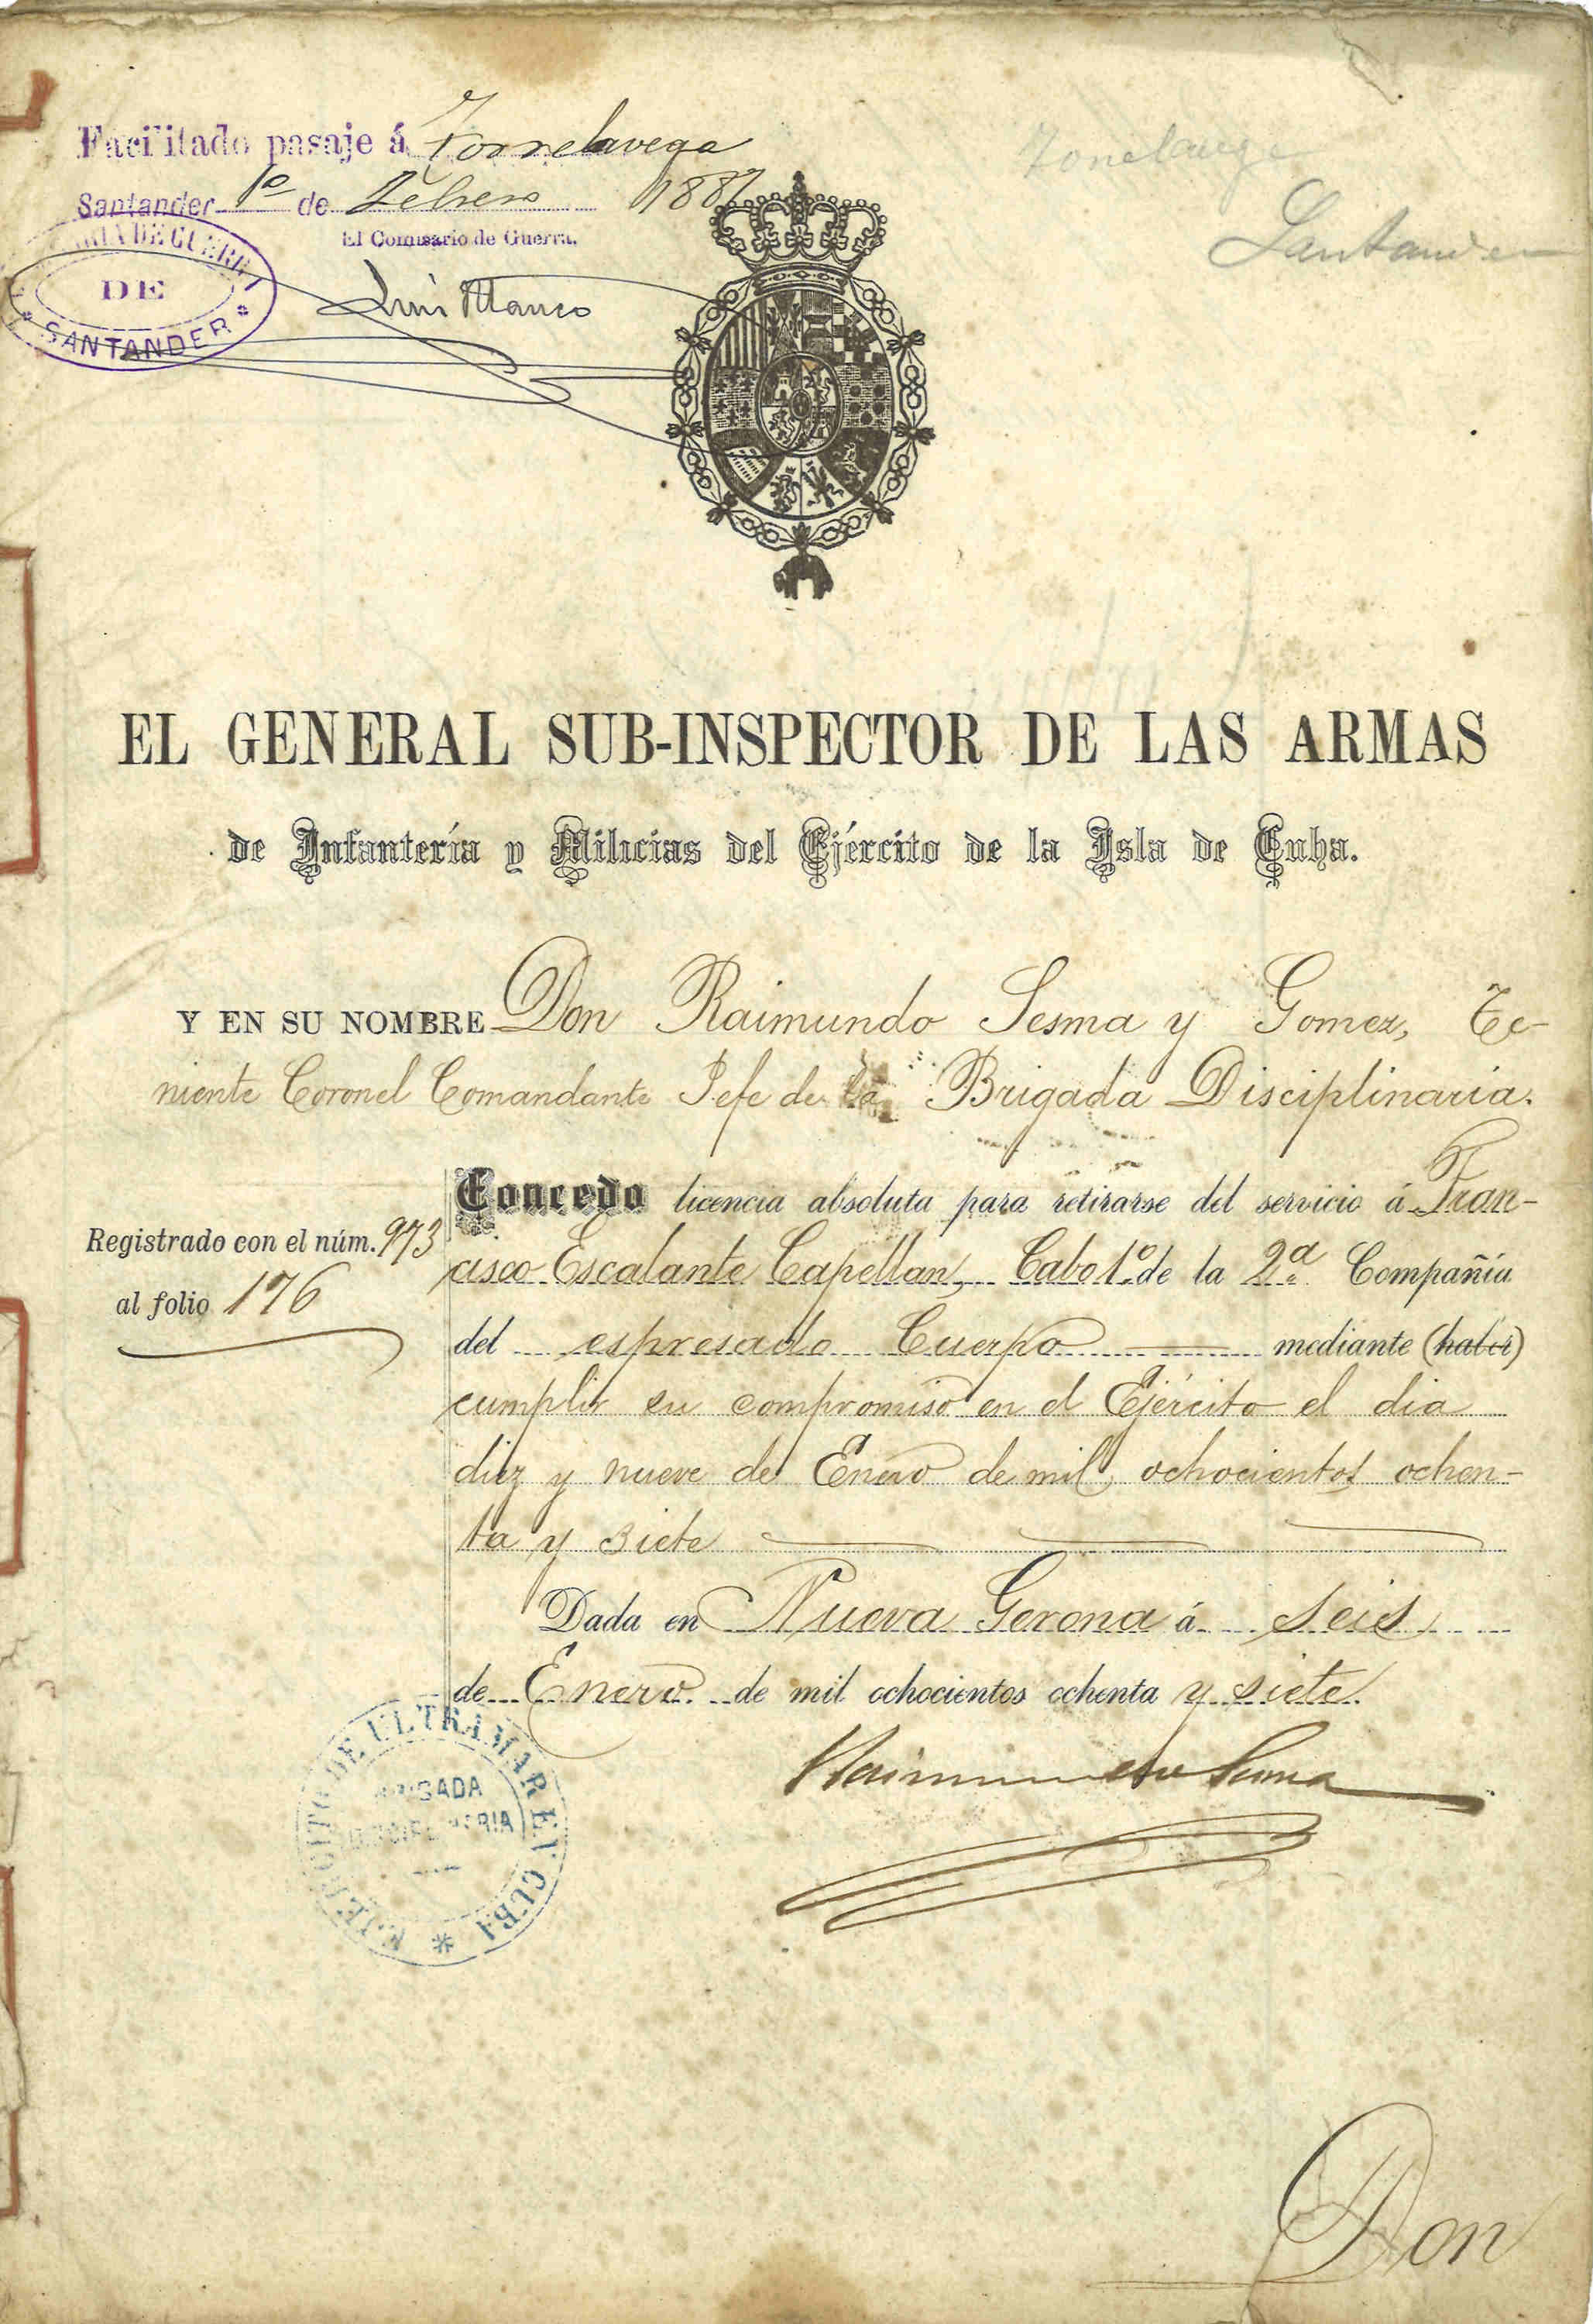 Facilitado pasaje á Torrelavega
Santander 1º de Febrero 1887
El Comisario de Guerra.
DE GUERRA
DE
* SANTANDER *
Luis Blanco
Torrelavega
Santander
EL GENERAL SUB-INSPECTOR DE LAS ARMAS
de Infantería y Milicias del Ejército de la Isla de Cuba.
Y EN SU NOMBRE Don Raimundo Sesma y Gomez, Te-
niente Coronel Comandante Jefe de la Brigada Disciplinaria.
Concedo licencia absoluta para retirarse del servicio á Fran-
cisco Escalante Capellan, Cabo 1º de la 2ª Compañia
del espresado Cuerpo mediante (haber)
cumplir su compromiso en el Ejército el dia
diez y nueve de Enero de mil ochocientos ochen-
ta y siete
Registrado con el núm. 973
al folio 176
Dada en Nueva Gerona á seis
de Enero de mil ochocientos ochenta y siete.
Raimundo Sesma
EJERCITO DE ULTRAMAR EN CUBA *
BRIGADA
DISCIPLINARIA
Don